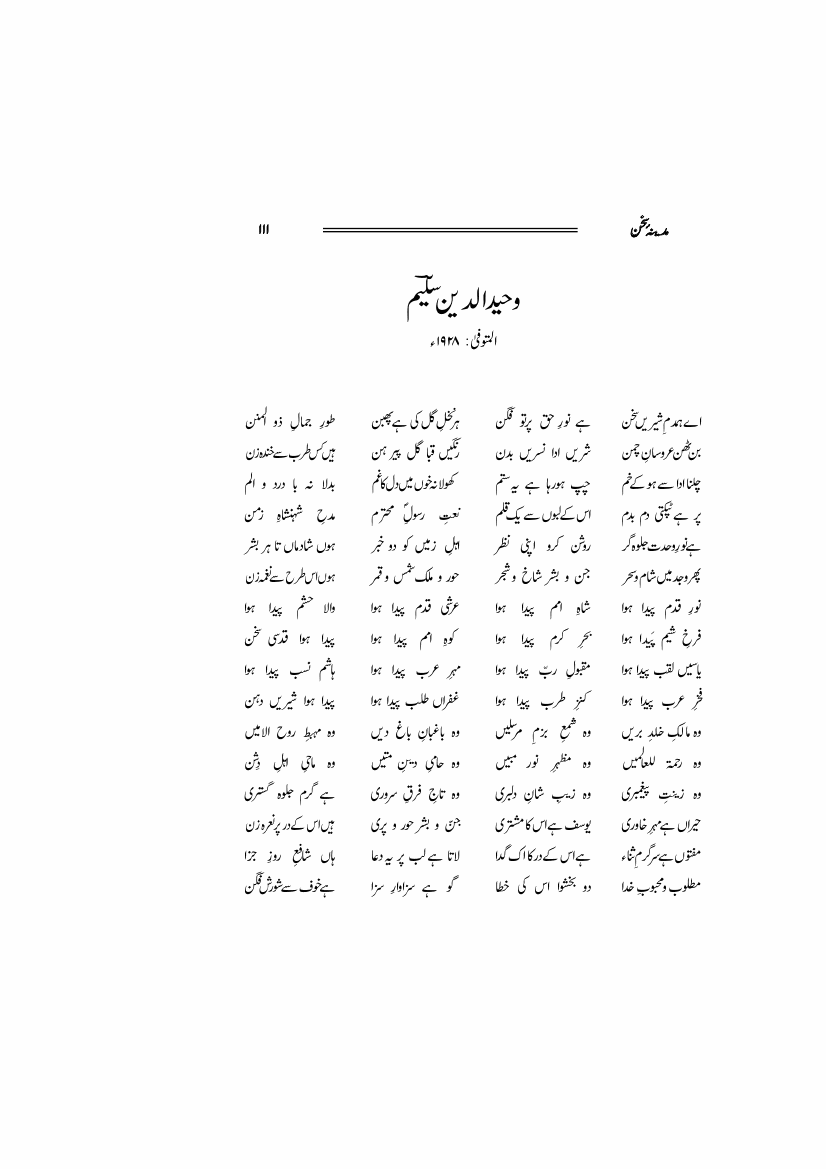 مدینۂ سخن ۱۱۱
وحید الدین سلیم
المتوفیٰ: ۱۹۲۸ء
اے ہمدمِ شیریں سخن ہے نورِ حق پرتو فگن ہر نخلِ گل کی ہے پھبن طورِ جمالِ ذو المنن
بن ٹھن عروسانِ چمن شریں ادا نسریں بدن رنگیں قبا گل پیرہن ہیں کس طرب سے خندہ زن
چلنا ادا سے ہو کے خم چپ ہورہا ہے یہ ستم کھولا نہ خوں میں دل کا غم بدلا نہ با درد و الم
پر ہے ٹپکتی دم بدم اس کے لبوں سے یک قلم نعتِ رسولِؐ محترم مدحِ شہنشاہِ زمن
ہے نورِ وحدت جلوہ گر روشن کرو اپنی نظر اہلِ زمیں کو دو خبر ہوں شادماں تا ہر بشر
پھر وجد میں شام و سحر جن و بشر شاخ و شجر حور و ملک شمس و قمر ہوں اس طرح سے نغمہ زن
نورِ قدم پیدا ہوا شاہِ امم پیدا ہوا عرشی قدم پیدا ہوا والا حشم پیدا ہوا
فرخِ شیم پیدا ہوا بحرِ کرم پیدا ہوا کوہِ امم پیدا ہوا پیدا ہوا قدسی سخن
یاسیں لقب پیدا ہوا مقبولِ ربّ پیدا ہوا مہرِ عرب پیدا ہوا ہاشم نسب پیدا ہوا
فخرِ عرب پیدا ہوا کنزِ طرب پیدا ہوا غفراں طلب پیدا ہوا پیدا ہوا شیریں دہن
وہ مالکِ خلدِ بریں وہ شمعِ بزمِ مرسلیں وہ باغبانِ باغِ دیں وہ مہبطِ روح الامیں
وہ رحمۃ للعالمیں وہ مظہرِ نور مبیں وہ حامیِ دینِ متیں وہ ماحیِ اہلِ وثن
وہ زینتِ پیغمبری وہ زیبِ شانِ دلبری وہ تاجِ فرقِ سروری ہے گرم جلوہ گستری
حیراں ہے مہرِ خاوری یوسف ہے اس کا مشتری جنّ و بشر حور و پری ہیں اس کے در پر نعرہ زن
مفتوں ہے سرگرمِ ثناء ہے اس کے در کا اک گدا لاتا ہے لب پر یہ دعا ہاں شافعِ روزِ جزا
مطلوب و محبوبِ خدا دو بخشوا اس کی خطا گو ہے سزاوارِ سزا ہے خوف سے شورش فگن